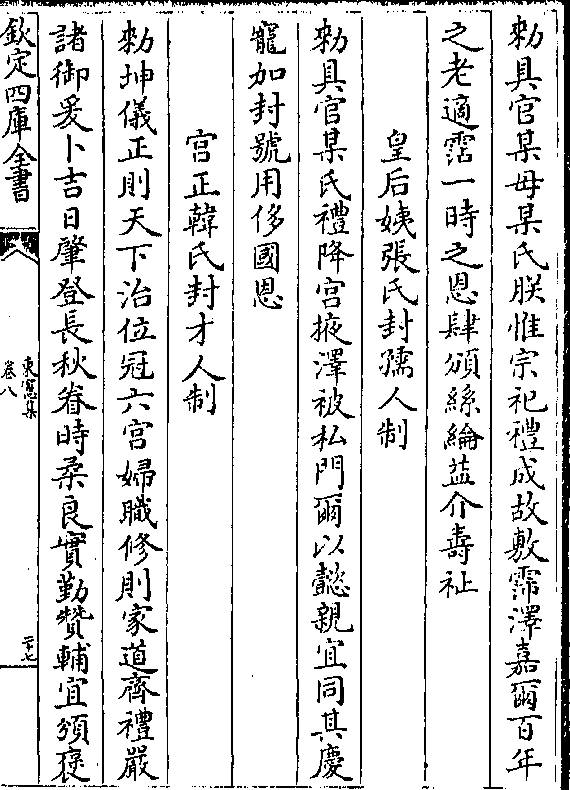 勑具官某母某氏朕惟宗祀禮成故敷霈澤嘉爾百年
之老適霑一時之恩肆頒絲綸葢介壽祉
皇后姨張氏封孺人制
勑具官某氏禮降宫掖澤被私門爾以懿親宜同其慶
寵加封號用侈國恩
宫正韓氏封才人制
勑坤儀正則天下治位冠六宫婦職修則家道齊禮嚴
諸御爰卜吉日肇登長秋眷時柔良實勤贊輔宜頒褒
欽定四庫全書
東窻集
卷八
二十七